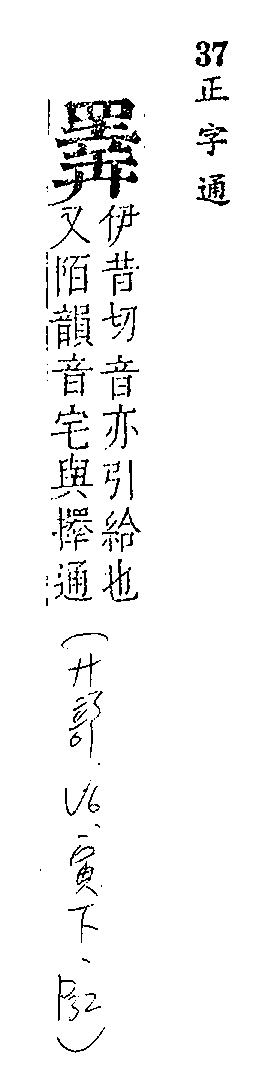 37 正字通
伊昔切音亦引給也
又陌韻音宅與擇通
(廾部.V6、寅下、P32)